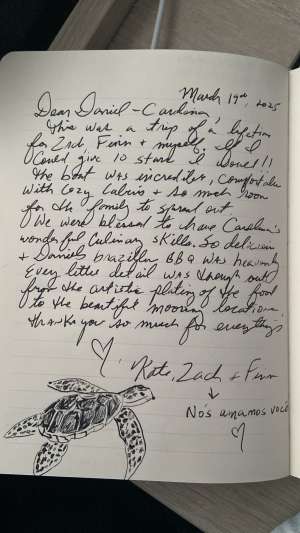 March 19th, 2025
Dear Daniel - Carolina,
This was a trip of a lifetime
for Zach, Finn + myself. If I
could give 10 stars I would!!
The boat was incredible, comfortable
with cozy cabins + so much room
for the family to spread out
We were blessed to have Carolina's
wonderful culinary skills. So delicious
+ Daniel's brazilian BBQ was heavenly
Every little detail was thought out
from the artistic plating of the food
to the beautiful mooring locations.
Thank you so much for everything
♡, Kate, Zach + Finn
↓
Nós amamos você
♡